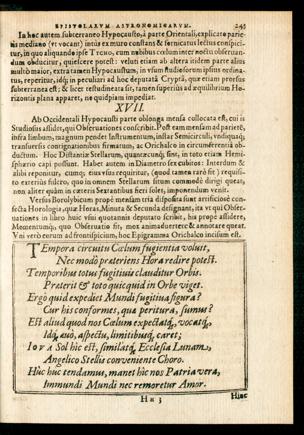 EPISTOLARVM ASTRONOMICARVM. 245
In hoc autem subterraneo Hypocausto, à parte Orientali, explicato parie-
tis mediano (vt vocant) intùs ex muro constans & fornicatus lectus conspici-
tur, in quo aliquando ipse TYCHO, cum nubibus coelum inter noctu obseruan-
dum obducitur, quiescere potest: veluti etiam ab altera itidem parte alius
multò maior, extra tamen Hypocaustum, in vsum studiosorum ipsius ordina-
tus, reperitur, idq; in peculiari ad hoc deputatâ Cryptâ, quæ etiam prorsus
subterranea est; & licet testudineata sit, tamen superiùs ad æquilibrium Ho-
rizontis plana apparet, ne quid piam impediat.
XVII.
Ab Occidentali Hypocausti parte oblonga mensa collocata est, cui is
Studiosus assidet, qui Obseruationes conscribit. Post eam mensam ad parietè,
infra limbum, magnum pendet Instrumentum, instar Semicirculi, vndiquaq;
transuersis consignationibus firmatum, ac Orichalco in circumferentia ob-
ductum. Hoc Distantiæ Stellarum, quantæcunq; sint, in toto etiam Hemi-
sphærio capi possunt. Habet autem in Diametro sex cubitos: Interdum &
alibi reponitur, cumq; eius vsus requiritur, (quod tamen rarò fit) requisi-
to exteriùs fulcro, quo in omnem Stellarum situm commodè dirigi queat,
non aliter quàm in cæteris Sextantibus fieri solet, imponendum venit.
Versus Borolybicum propè mensam tria disposita sunt artificiosè confe-
cta Horologia, quæ Horas, Minuta & Secunda designant, ita vt qui Obser-
uationes in libro huic vsui quotannis deputato scribit, his propè assidere,
Momentumq; quo Obseruatio fit, mox animaduertere & annotare queat.
Vni verò eorum ad frontispicium, hoc Epigramma Orichalco incisum est.
TEmpora circuitu Cælum fugientia voluit,
Nec modò præteriens Hora redire potest.
Temporibus totus fugitiuis clauditur Orbis.
Præterit & toto quicquid in Orbe viget.
Ergò quid expediet Mundi fugitiua figura?
Cur his conformes, quæ peritura, sumus?
Est aliud quod nos Cœlum expectatq́, vocatq́,
Idq́ æuo, aspectu, limitibusq́, caret;
IOVA Sol hîc est, similatq́ Ecclesia Lunam,
Angelico Stellis conueniente Choro.
Hùc huc tendamus, manet hîc nos Patria vera,
Immundi Mundi nec remoretur Amor.
Hh 3
Hinc